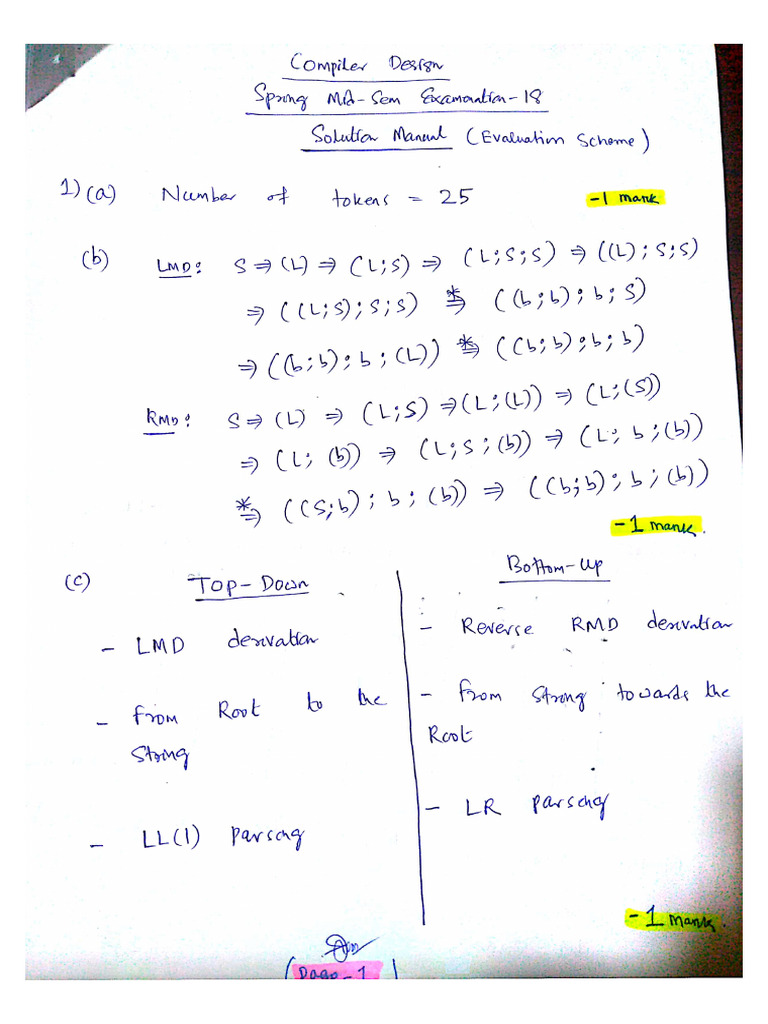 Compiler Design
Spring Mid-Sem Examination-18
Solution Manual (Evaluation Scheme)
1) (a) Number of tokens = 25 -1 mark
(b) LMD: S ⇒ (L) ⇒ (L;S) ⇒ (L;S;S) ⇒ ((L);S;S)
⇒ ((L;S);S;S) *⇒ ((b;b);b;S)
⇒ ((b;b);b;(L)) *⇒ ((b;b);b;b)
RMD: S ⇒ (L) ⇒ (L;S) ⇒ (L;(L)) ⇒ (L;(S))
⇒ (L;(b)) ⇒ (L;S;(b)) ⇒ (L;b;(b))
*⇒ ((S;b);b;(b)) ⇒ ((b;b);b;(b))
-1 mark.
(c) Top-Down
- LMD derivation
- From Root to the
String
- LL(1) Parsing
Bottom-Up
- Reverse RMD derivation
- From String towards the
Root
- LR Parsing
-1 mark.
(Page-1)